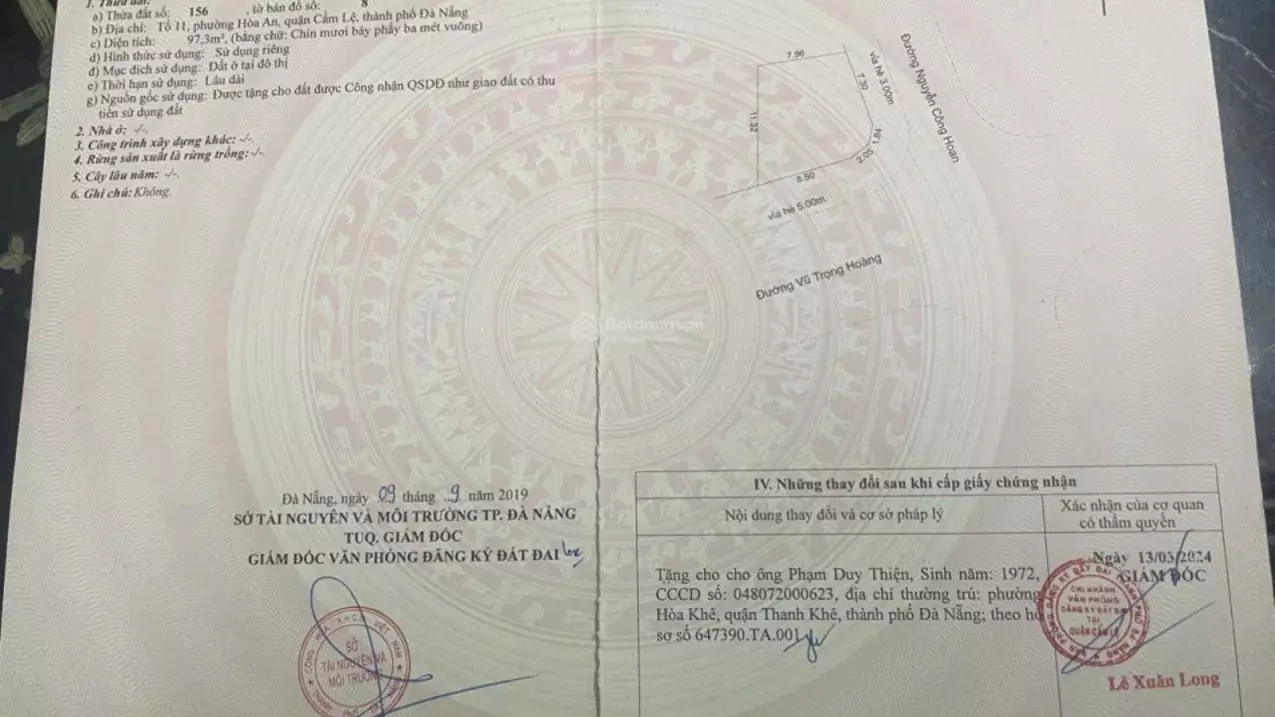 1. Thửa đất:
a) Thửa đất số: 156 , tờ bản đồ số: 8
b) Địa chỉ: Tổ 11, phường Hòa An, quận Cẩm Lệ, thành phố Đà Nẵng
c) Diện tích: 97,3m², (bằng chữ: Chín mươi bảy phẩy ba mét vuông)
d) Hình thức sử dụng: Sử dụng riêng
đ) Mục đích sử dụng: Đất ở tại đô thị
e) Thời hạn sử dụng: Lâu dài
g) Nguồn gốc sử dụng: Được tặng cho đất được Công nhận QSDĐ như giao đất có thu
tiền sử dụng đất
2. Nhà ở: -/-.
3. Công trình xây dựng khác: -/-.
4. Rừng sản xuất là rừng trồng: -/-.
5. Cây lâu năm: -/-.
6. Ghi chú: Không.
7.96
7.30
vỉa hè 3.00m
Đường Nguyễn Công Hoan
11.32
1.84
2.05
8.50
vỉa hè 5.00m
Đường Vũ Trọng Hoàng
Batdongsan
Đà Nẵng, ngày 09 tháng 9 năm 2019
SỞ TÀI NGUYÊN VÀ MÔI TRƯỜNG TP. ĐÀ NẴNG
TUQ. GIÁM ĐỐC
GIÁM ĐỐC VĂN PHÒNG ĐĂNG KÝ ĐẤT ĐAI
SỞ
TÀI NGUYÊN VÀ
MÔI TRƯỜNG
IV. Những thay đổi sau khi cấp giấy chứng nhận
Nội dung thay đổi và cơ sở pháp lý
Xác nhận của cơ quan
có thẩm quyền
Tặng cho cho ông Phạm Duy Thiện, Sinh năm: 1972,
CCCD số: 048072000623, địa chỉ thường trú: phường
Hòa Khê, quận Thanh Khê, thành phố Đà Nẵng; theo hồ
sơ số 647390.TA.001
Ngày 13/03/2024
GIÁM ĐỐC
CHI NHÁNH
VĂN PHÒNG
ĐĂNG KÝ ĐẤT ĐAI
TẠI
QUẬN CẨM LỆ
Lê Xuân Long